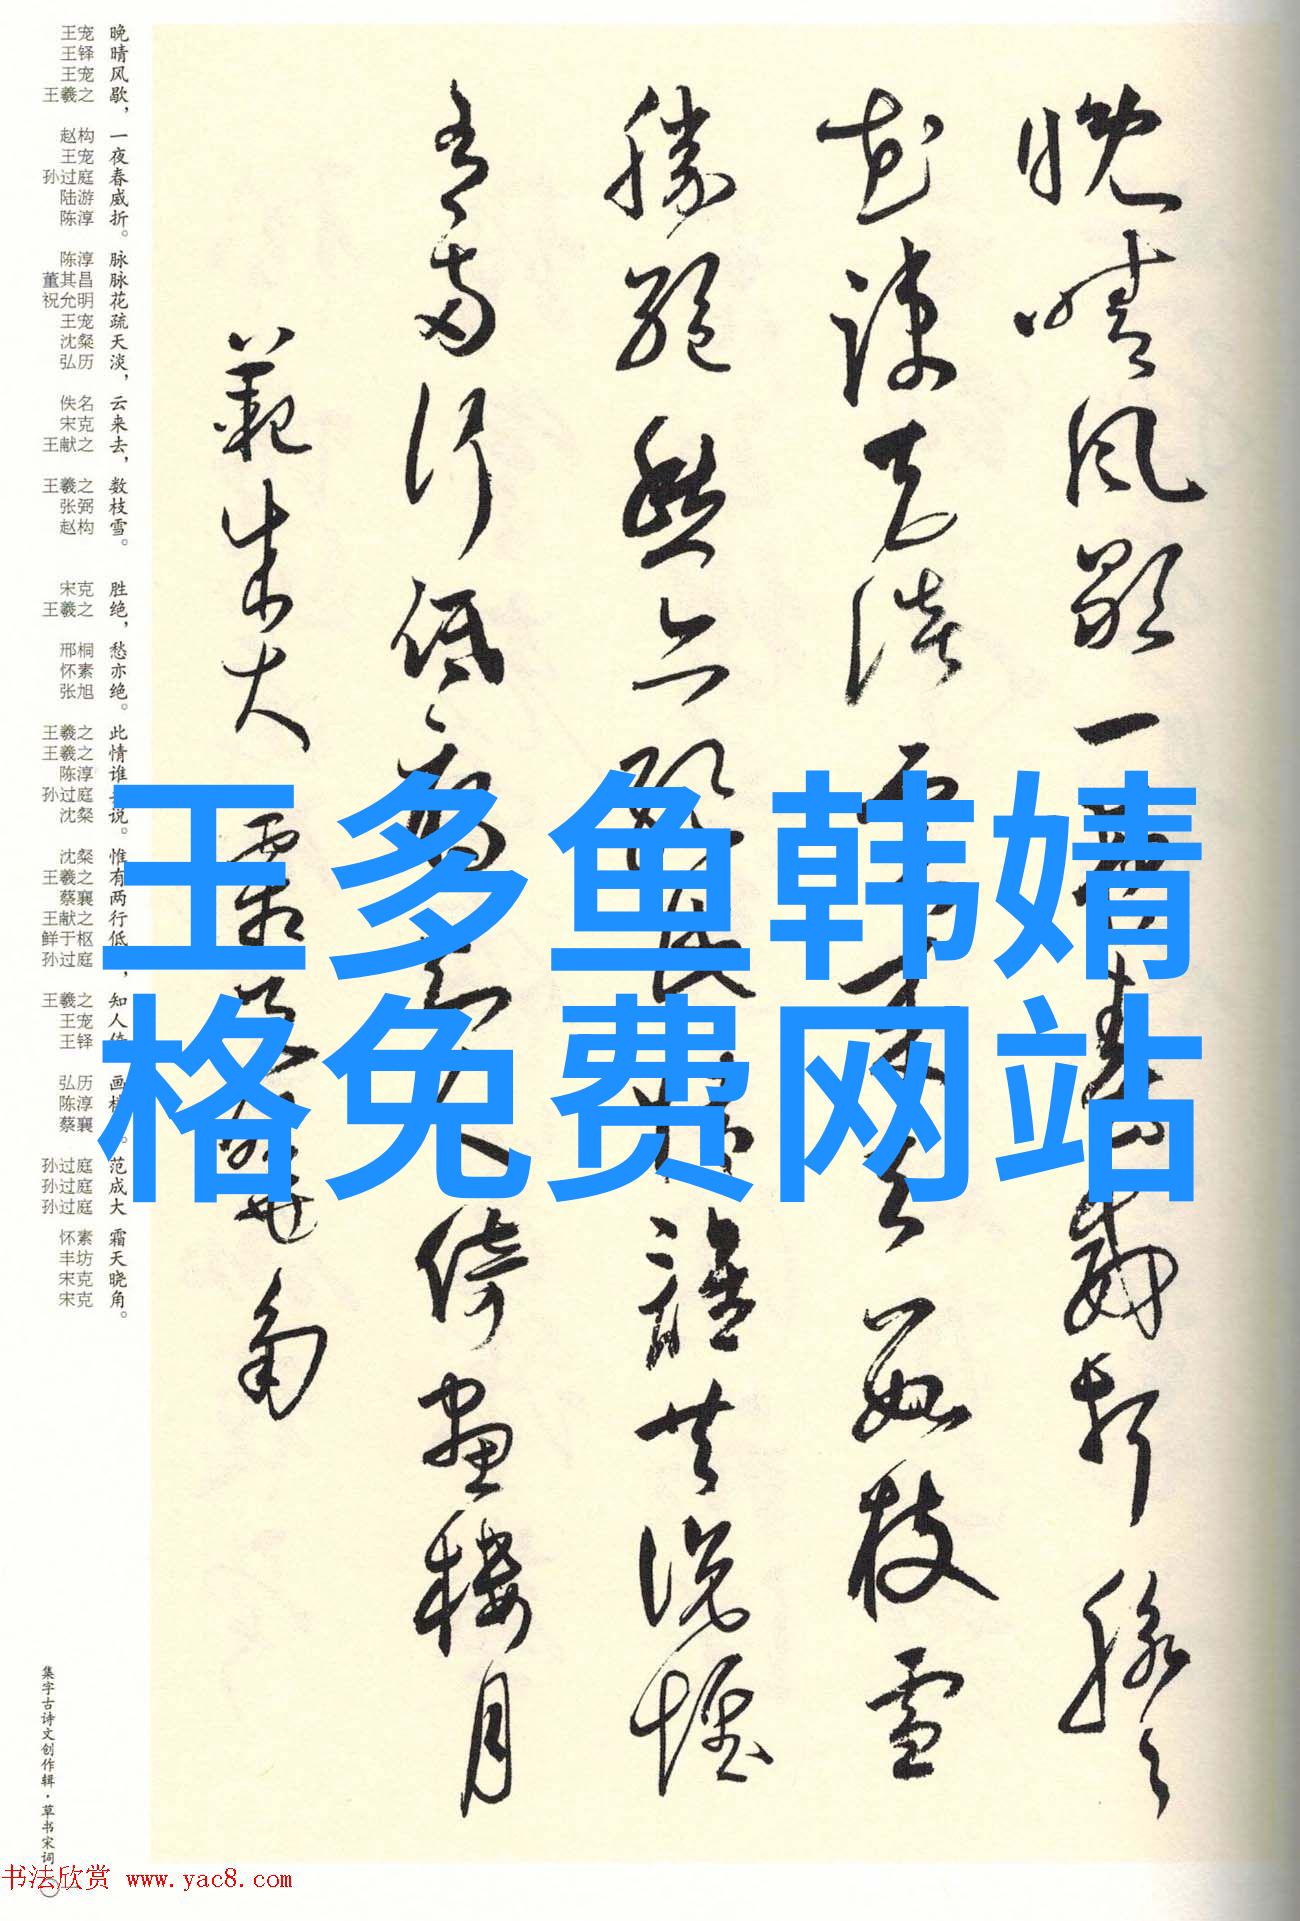 晚晴风歇一夜春威折脉脉
花疏天淡云来去数枝雪
胜绝愁亦绝此情谁共说惟
有两行低雁知人倚画楼月
范成大 霜天晓角
王多鱼韩婧
格免费网站
王宠 晚
王铎 晴
王宠 风
王羲之 歇，
赵构 一
王宠 夜
孙过庭 春
陆游 威
陈淳 折。
陈淳 脉
董其昌 脉
祝允明 花
王宠 疏
沈粲 天
弘历 淡，
佚名 云
宋克 来
王献之 去，
王羲之 数
张弼 枝
赵构 雪。
宋克 胜
王羲之 绝，
邢桐 愁
怀素 亦
张旭 绝。
王羲之 此
王羲之 情
陈淳 谁
孙过庭
沈粲 说。
沈粲 惟
王羲之 有
蔡襄 两
王献之 行
鲜于枢 低
孙过庭 ，
王羲之 知
王宠 人
王铎 倚
弘历 画
陈淳 楼
蔡襄 。
孙过庭 范
孙过庭 成
孙过庭 大
怀素 霜
丰坊 天
宋克 晓
宋克 角。
集字古诗文创作辑·草书宋词
书法欣赏 www.yac8.com